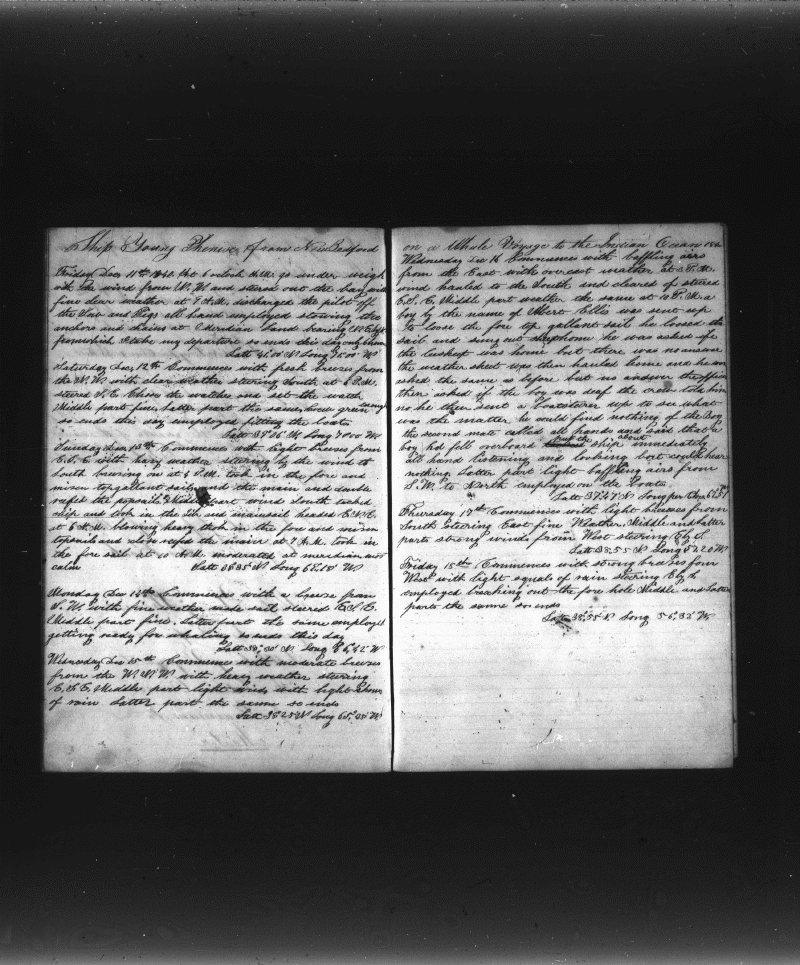 Ship Young Phenix from New Bedford
Friday Dec 11th 1840 At 6 oclock A.M. go under weigh
with the wind from N.W and stered out the bay with
fine clear weather at 9 A.M. discharged the pilot off
the Sow and Pigs all hand employed stowing the
anchors and chains at Meridian Land bearing
from which I take my departure so ends this day only
Latt 41.00 N Long W
Saturday Dec 12th Commences with fresh brezes from
the N.W with clear weather stering South at 6 P.M.
stered S.E. Chose the watches and set the watch
Middle part fine Latter part the same
so ends this day employed fitting the boats
Latt 39°26 N, Long 70.00 W
Sunday Dec 13th Commences with light brezes from
E.S.E with hazy weather stering by the wind to
South brezing on at 9 P.M. took in the fore and
mizen topgallant sails and the main and double
reefed the topsails Middle part wind South tacked
ship and took in the Jib and mainsail headed E.N.E.
at 6 A.M. blowing heavy took in the fore and mizen
topsails and close reefed the main at 9 A.M. took in
the fore sail at 10 A.M. moderated at meridian most
calm Latt N Long W
Monday Dec 14th Commences with a breze from
N.W. with fine weather made sail steared E.S.E.
Middle part fine. Latter part the same employed
getting ready for whaling so ends this day
Latt N. Long W
Wednesday Dec 15th Commence with moderate brezes
from the W.N.W with heavy weather stering
E.S.E. Middle part light winds with light
of rain Latter part the same so ends
Latt 38°25 N Long W
on a Whale Voyage to the Indian Ocean
Wednesday Dec 16 Commences with baffling airs
from the East with overcast wather at P.M.
wind hauled to the South and cleared of stered
E.S.E, Middle part weather the same at 10 P.M. a
boy by the name of Albert Ellis was sent up
to loose the fore top gallant sail he loosed the
sail and sung out he was asked if
the was home but there was no answer
the weather sheet was then hauled home and he
asked the same as before but no answer the officer
then asked if the boy was deaf the crew told him
no he then sent a boatsterer up to see what
was the matter, he could find nothing of the Boy
the second mate called all hands and said that a
boy had fell overboard the ship about immediately
all hand listening and looking but could hear
nothing Latter part light baffling airs from
S.W. to North employed on the Boats
Latt 37°47 N Long per Chr
Thursday 17th Commences with light brezes from
South Stering East fine Weather. Middle and latter
parts strong winds from West stering E by S
Latt 38°55 N Long W
Friday 18th Commences with strong brezes from
West with light squals of rain stering E by S
employed breaking out the fore hole Middle and Latter
parts the same so ends
Latt 38°55 N Long 56°32 W,